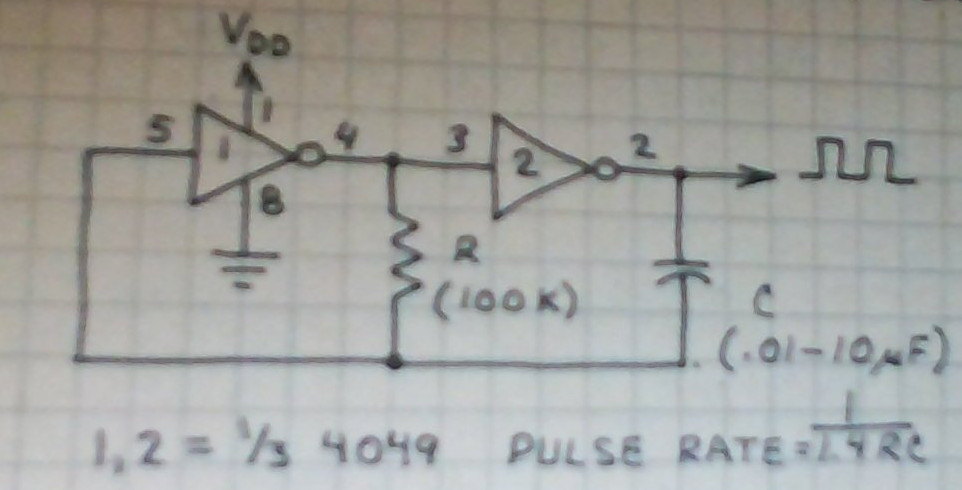 VDD
1
5
1
4
3
2
2
8
R
(100K)
C
(.01-10µF)
1,2 = 1/3 4049 PULSE RATE = 1/1.4RC